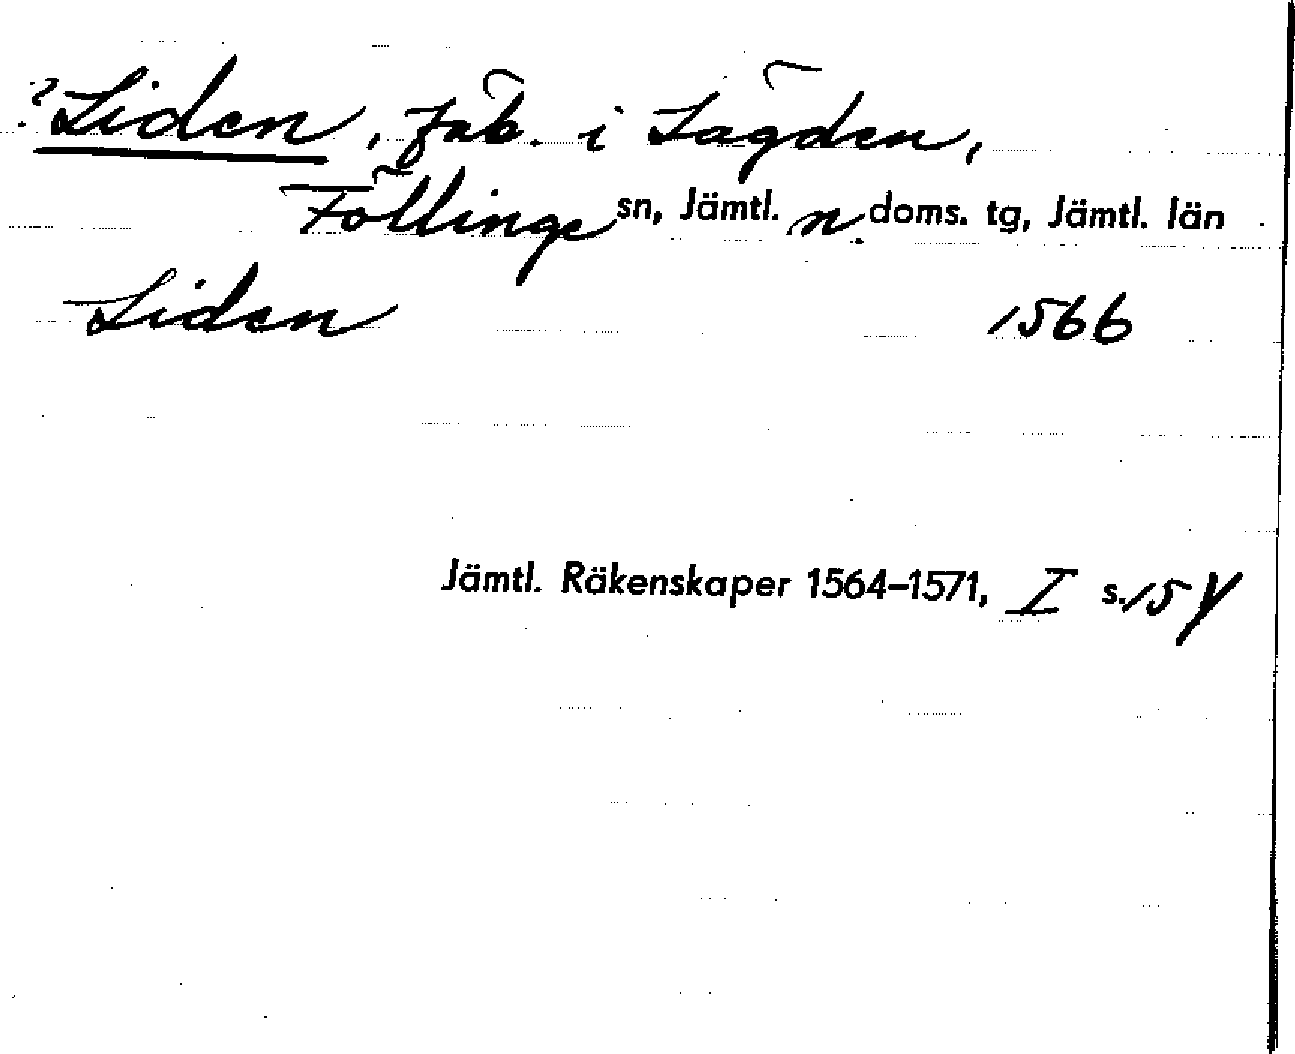 ? Liden, fäb. i Lägden,
Föllinge sn, Jämtl. n. doms. tg, Jämtl. län
Liden 1566
Jämtl. Räkenskaper 1564–1571, I s.